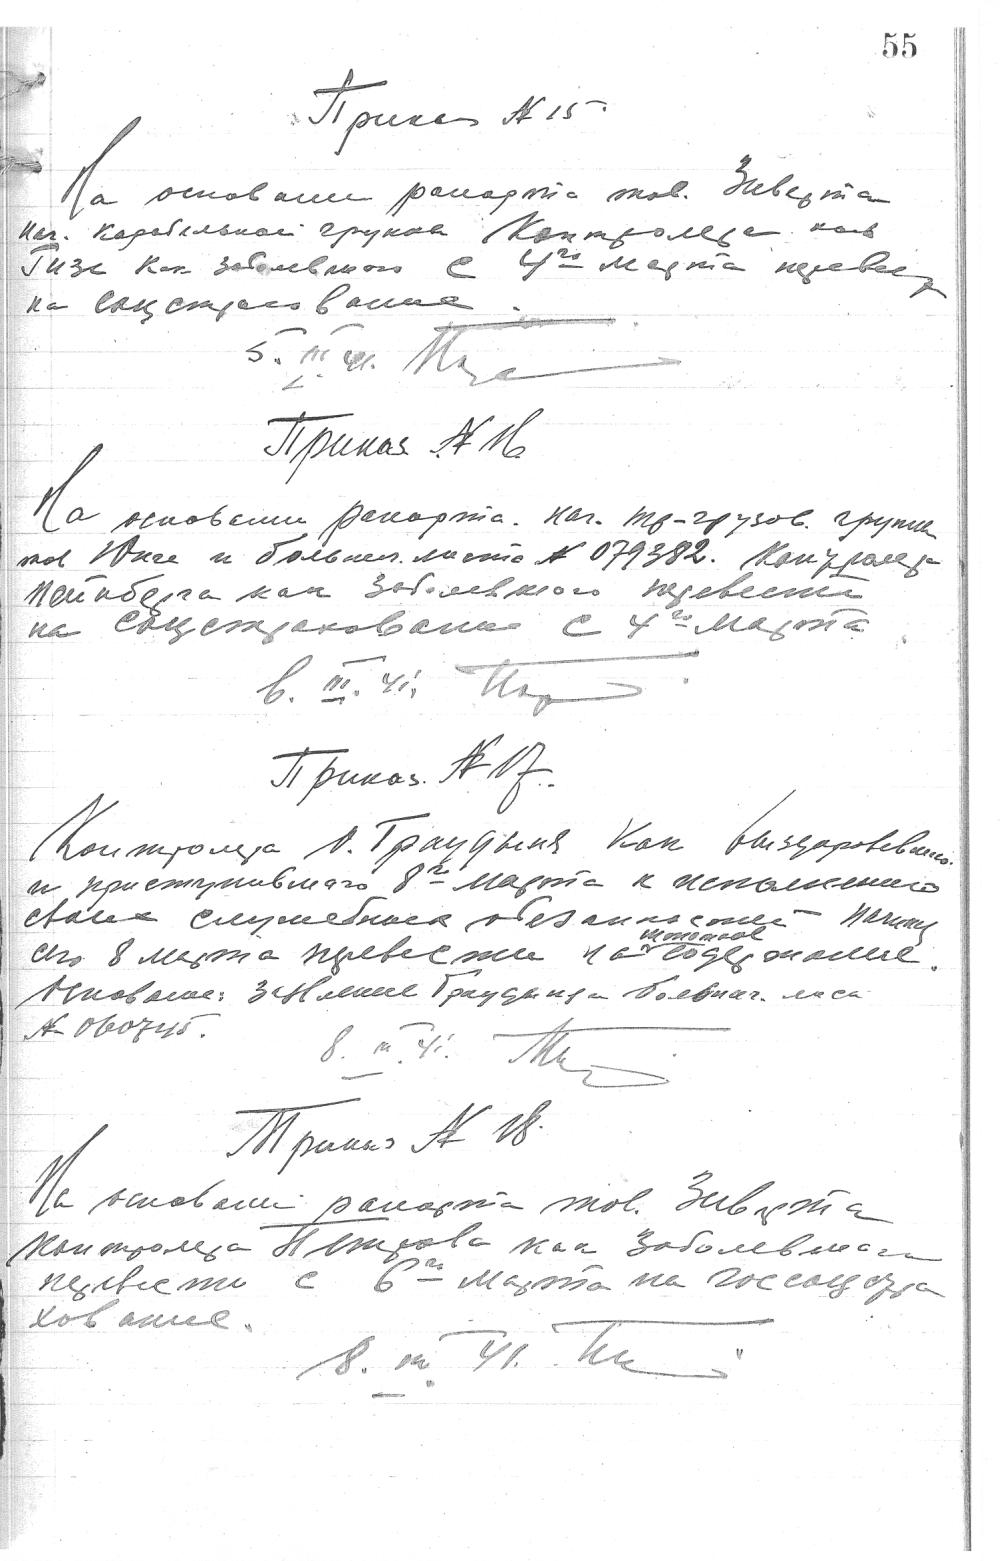 55
Приказ № 15
На основании рапорта тов. Зиверта
нач. карабельной групы Контролера
Гизе как заболевшого с 4го марта перевест
на соцстрахование.
5. III 41.
Приказ № 16.
На основании рапорта. нач. тр-грузов. групы
тов Юнге и больнич. листа № 079382. Контролера
Вейнберга как заболевшого перевести
на соцстрахование с 4го марта
6. III. 41.
Приказ. № 17.
Контролера А. Граудыня как выздоровевшого
и приступившаго 8го марта к исполнению
своих служебных обезанностей начиная
с 8 марта перевести на штатное содержание.
Основание: Заявление Граудыня больнич. лиса
№ 060745.
8. III. 41.
Приказ № 18.
На основании рапорта тов. Зиверта
контролера Петрова как заболевшаго
перевести с 6го марта на госсоцстра
хование.
8. III. 41.